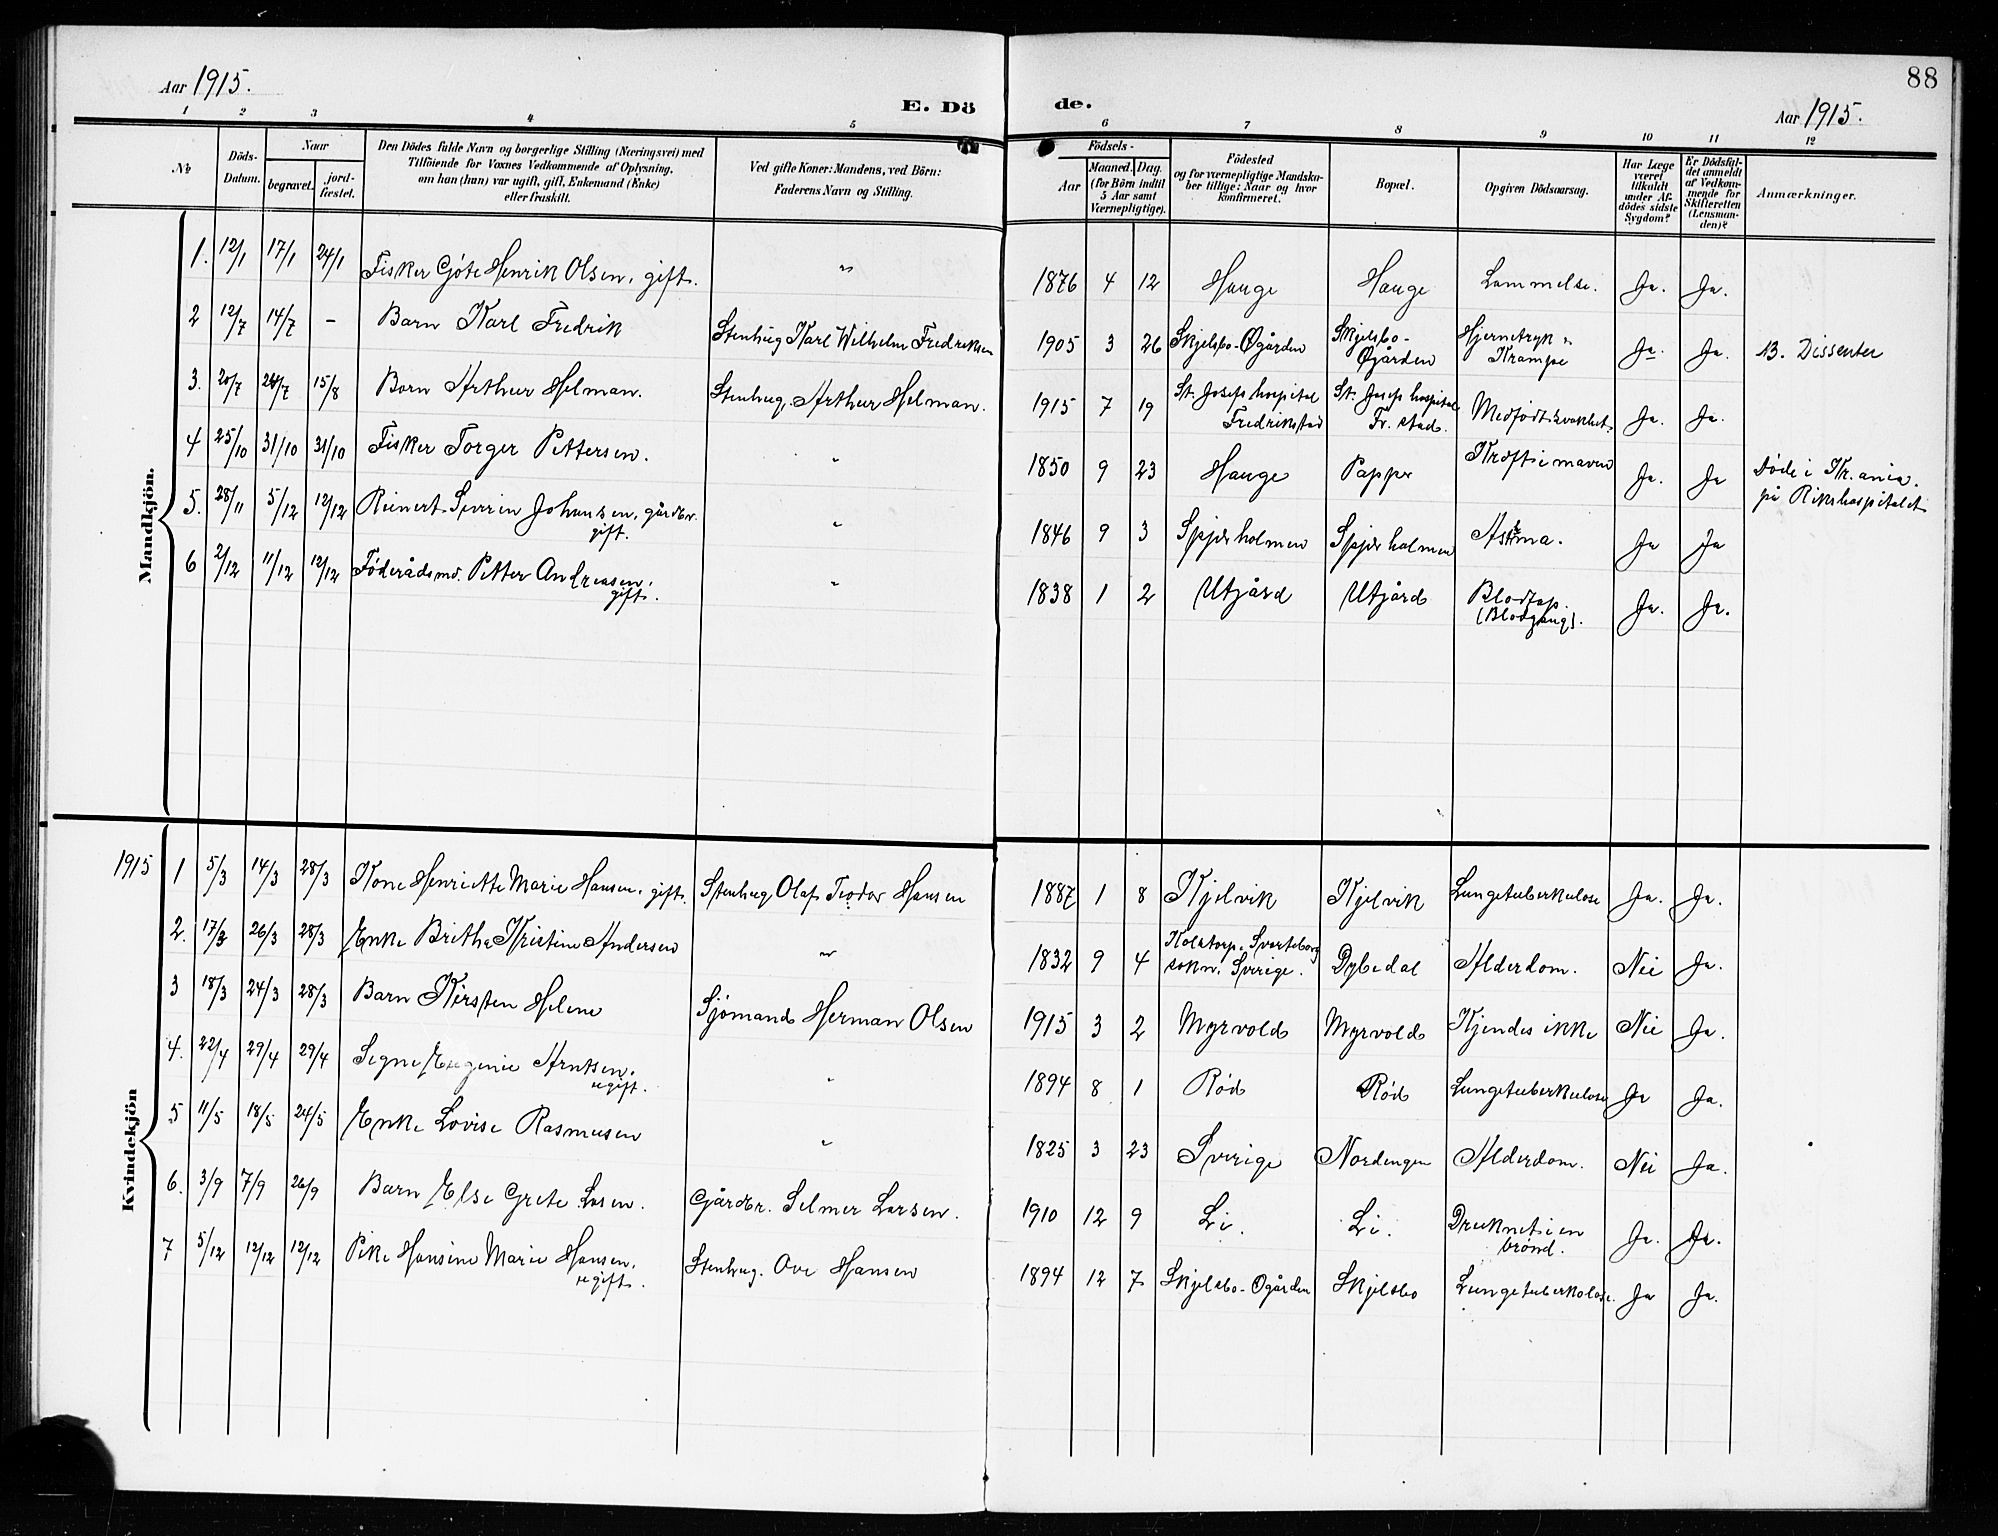 88
Aar 1915.
E. Dö de.
Aar 1915.
1 2 3 4 5 6 7 8 9 10 11 12
No
Döds-Datum.
Naar
begravet.
jord-fæstet.
Den Dödes fulde Navn og borgerlige Stilling (Næringsvei) med
Tilföiende for Voxnes Vedkommende af Oplysning,
om han (hun) var ugift, gift, Enkemand (Enke)
eller fraskilt.
Ved gifte Koner: Mandens, ved Börn:
Faderens Navn og Stilling.
Födsels-
Aar
Maaned. Dag.
(for Börn indtil
5 Aar samt
Værnepligtige).
Födested
og for værnepligtige Mandska-
ber tillige: Naar og hvor
konfirmeret.
Bopæl.
Opgiven Dödsaarsag.
Har Læge
været
tilkaldt
under Af-
dödes sidste
Sygdom?
Er Dödsfal-
det anmeldt
af Vedkom-
mende for
Skifteretten
(Lensman-
den)?
Anmærkninger.
Mandkjön.
1. 12/1 17/1 24/1 Fisker Gøte Henrik Olsen, gift. " 1876 4 12 Hauge Hauge Lammelse. Ja. Ja.
2 12/7 14/7 – Barn Karl Fredrik Stenhug Karl Wilhelm Fredriksen 1905 3 26 Skjelsbo-Øgården Skjelsbo-Øgården Hjernetryk Krampe Ja. Ja. 13. Dissenter
3. 20/7 24/7 15/8 Barn Arthur Helman. Stenhug. Arthur Helman. 1915 7 19 St. Josefs hospital Fredrikstad St. Josefs hospital Fr. stad. Medfødt svakhet. Ja. Ja.
4 25/10 31/10 31/10 Fisker Torger Pettersen. " 1850 9 23 Hauge Papper Kræft i maven Ja. Ja Døde i Kr.ania. på Rikshospitalet
5. 28/11 5/12 12/12 Reinert Severin Johansen, gårdbr. gift. " 1846 9 3 Spjærholmen Spjærholmen Astma. Ja Ja
6 2/12 11/12 12/12 Føderådsmd. Petter Andreasen, gift. " 1838 1 2 Utgård Utgård Blodtap. (Blodgang). Ja. Ja.
Kvindekjön
1915 1 5/3 14/3 28/3 Kone Henriette Marie Hansen, gift. Stenhug Olaf Teodor Hansen 1887 1 8 Kjelvik Kjelvik Lungetuberkulose Ja. Ja.
2. 17/3 26/3 28/3 Enke Brithe Kristine Andersen " 1832 9 4 Kolstorp, Svarteborg sokn. Sverige. Dybedal Alderdom. Nei Ja.
3 18/3 24/3 28/3 Barn Kirsten Helene Sjømand Herman Olsen 1915 3 2 Myrvold Myrvold Kjendes ikke Nei Ja.
4. 22/4 29/4 29/4 Signe Eugenie Arntsen, ugift. " 1894 8 1 Rød Rød Lungetuberkulose Ja Ja.
5 11/5 18/5 24/5 Enke Lovise Rasmusen " 1825 3 23 Sverige Nordengen Alderdom. Nei Ja.
6. 3/9 7/9 26/9 Barn Else Grete Larsen. Gårdbr. Selmer Larsen. 1910 12 9 Li. Li. Druknet i en brønd. Ja. Ja.
7 5/12 12/12 12/12 Pike Hansine Marie Hansen, ugift. Stenhug. Ove Hansen 1894 12 7 Skjelsbo-Øgården Skjelsbo Lungetuberkulose. Ja Ja.